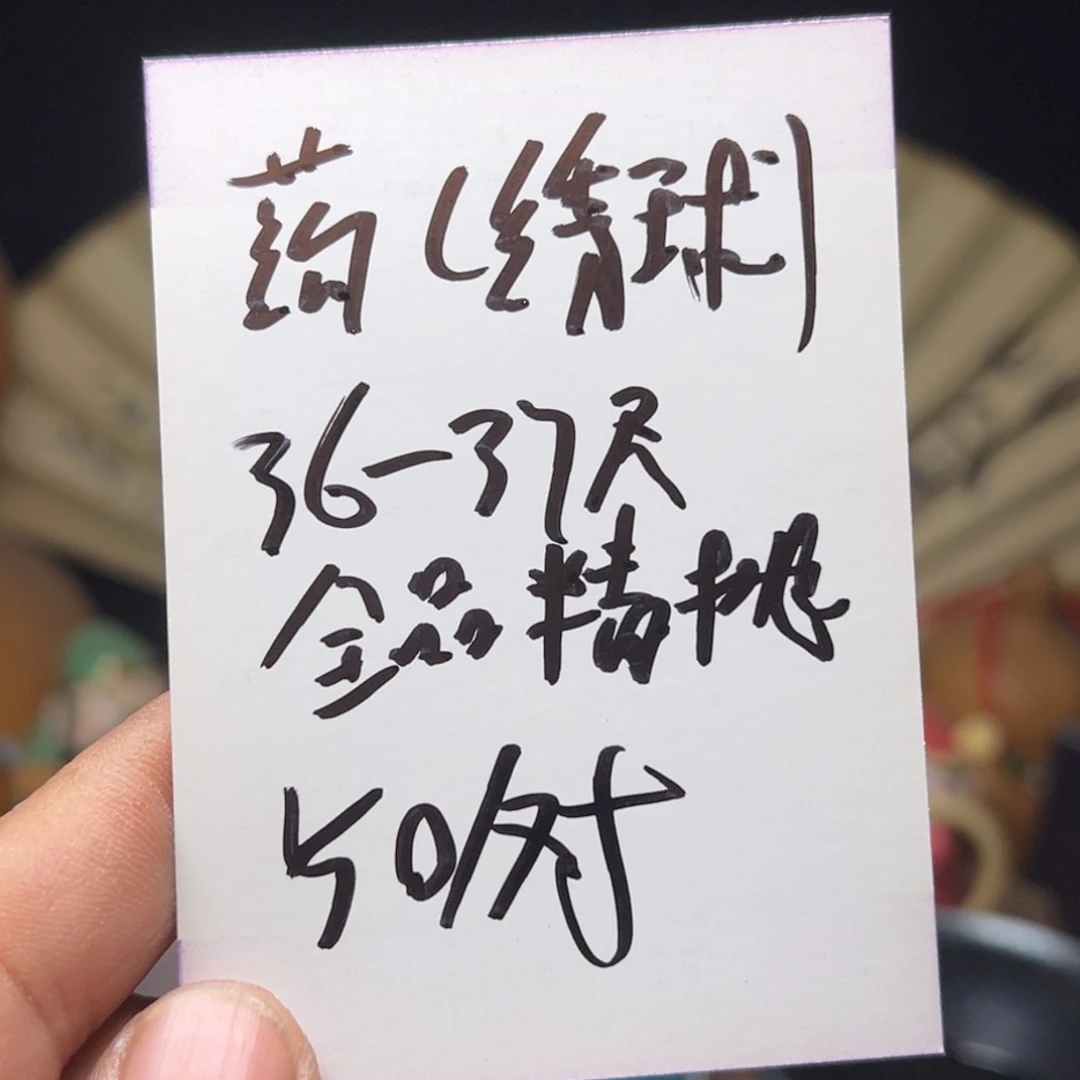 药(绣球)
36-37尺
全品精挑
50/对